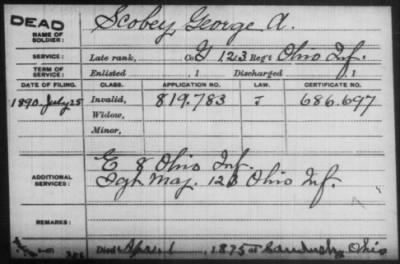 DEAD
NAME OF SOLDIER: Scobey, George A.
SERVICE: Late rank, Co. G 123 Reg't Ohio Inf.
TERM OF SERVICE: Enlisted , 1 Discharged , 1
DATE OF FILING. CLASS. APPLICATION NO. LAW. CERTIFICATE NO.
1890 July 25 Invalid, 819.783 J 686.697
Widow,
Minor,
ADDITIONAL SERVICES: E 8 Ohio Inf.
Sgt Maj. 123 Ohio Inf.
REMARKS:
Died April at Sandusky Ohio